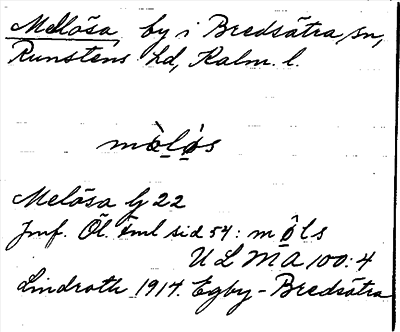 Mellösa, by i Bredsätra sn,
Runstens hd, Kalm. l.
mòlós
Melösa G 22
Jmf. Öl. Eml sid 54: môls
ULMA 100:4
Lindroth 1914. Egby-Bredsätra